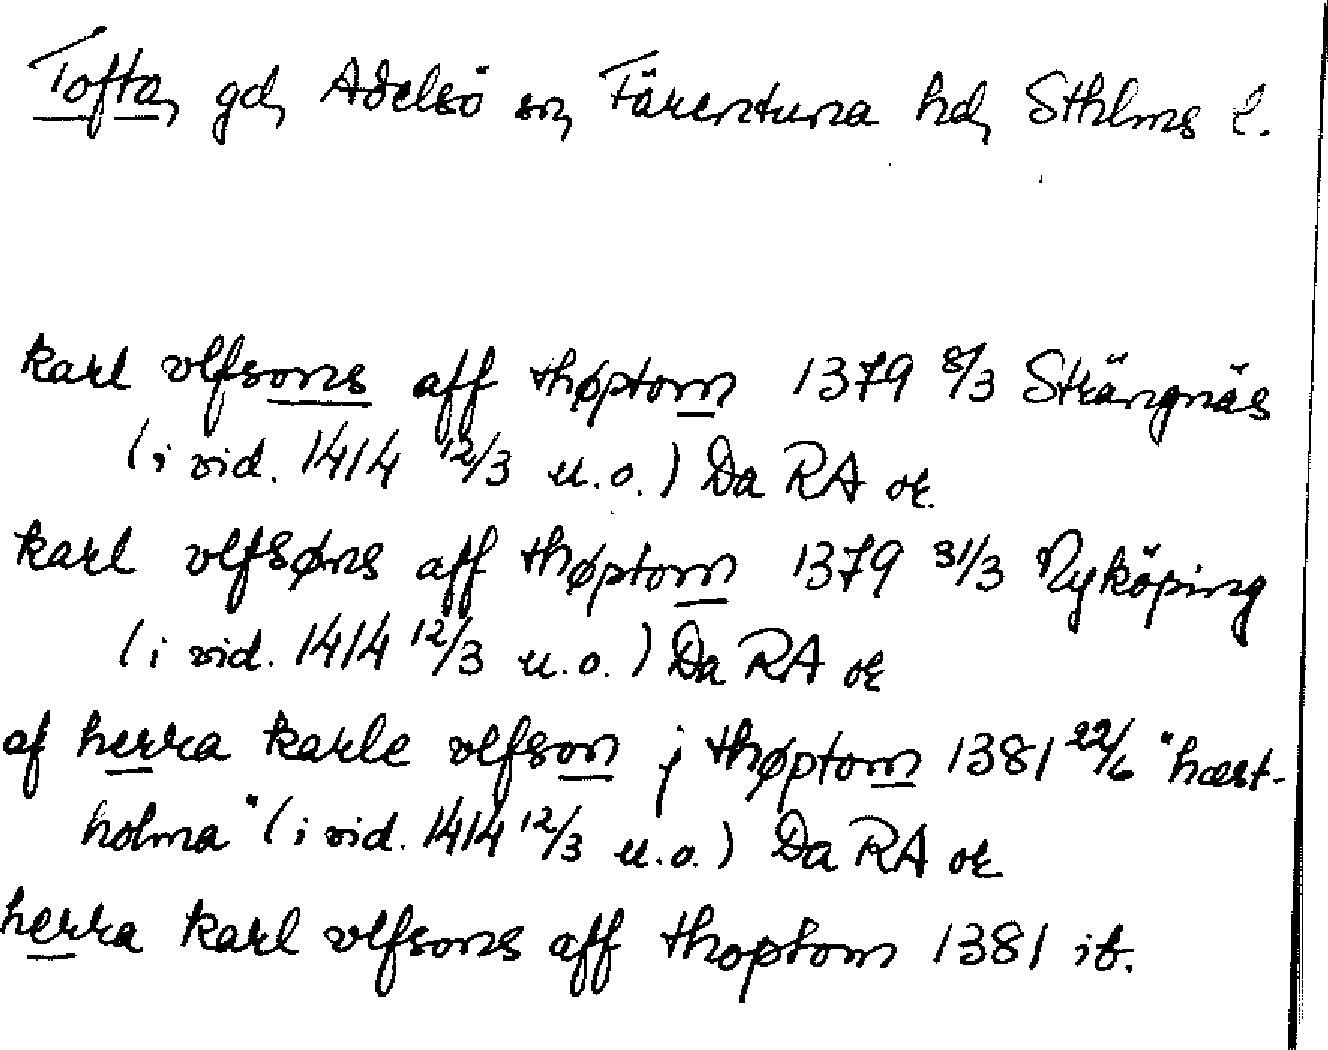 Tofta, gd, Adelsö sn, Färentuna hd, Sthlms l.
karl vlfsons aff thøptom 1379 8/3 Strängnäs
(i vid. 1414 12/3 u.o.) Da RA or.
karl vlfsøns aff thøptom 1379 31/3 Nyköping
(i vid. 1414 12/3 u.o.) Da RA or
af herra karle vlfson j thøptom 1381 22/6 "hæst-
holma" (i vid. 1414 12/3 u.o.) Da RA or
herra karl vlfsons aff thoptom 1381 ib.